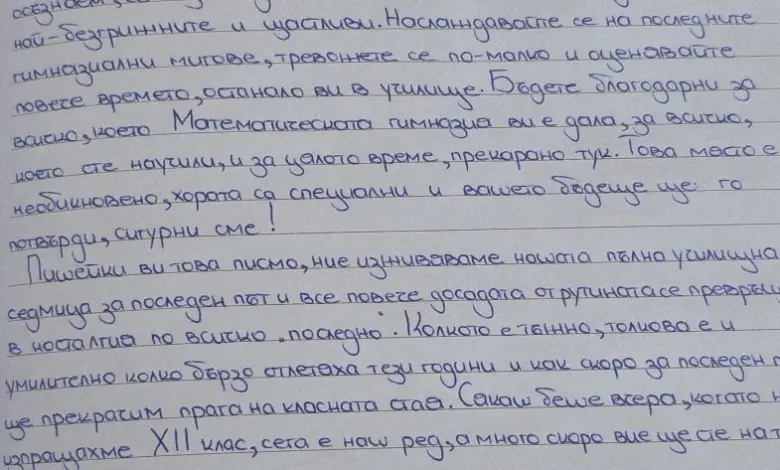 осъзнаем,
най-безгрижните и щастливи. Наслаждавайте се на последните
гимназиални мигове, тревожете се по-малко и оценявайте
повече времето, останало ви в училище. Бъдете благодарни за
всичко, което Математическата гимназия ви е дала, за всичко,
което сте научили, и за цялото време, прекарано тук. Това място е
необикновено, хората са специални и вашето бъдеще ще го
потвърди, сигурни сме!
Пишейки ви това писмо, ние изживяваме нашата пълна училищна
седмица за последен път и все повече досадата от рутината се превръща
в носталгия по всичко „последно“. Колкото е тъжно, толкова е и
умилително колко бързо отлетяха тези години и как скоро за последен
ще прекрасим прага на класната стая. Сякаш беше вчера, когато
изпращахме XII клас, сега е наш ред, а много скоро вие ще сте на